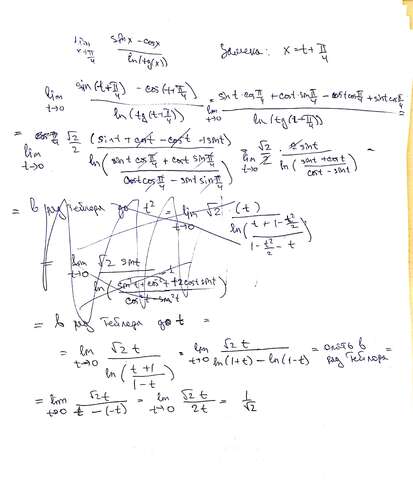 lim x→π/4 (sin x - cos x)/(ln(tg(x))) Замена: x = t + π/4
lim t→0 (sin(t+π/4) - cos(t+π/4))/(ln(tg(t+π/4))) = lim t→0 (sin t · cos π/4 + cos t · sin π/4 - cos t cos π/4 + sin t cos π/4)/(ln(tg(t+π/4))) =
= lim t→0 √2/2 (sin t + cos t - cos t + sin t)/(ln((sin t cos π/4 + cos t sin π/4)/(cos t cos π/4 - sin t sin π/4))) = lim t→0 √2/2 · 2 sin t/(ln((sin t + cos t)/(cos t - sin t))) =
= в ряд Тейлора до t² = lim t→0 √2 (t)/(ln((t + 1 - t²/2)/(1 - t²/2 - t)))
= lim t→0 √2 sin t/(ln((sin²t + cos²t + 2 cos t sin t)/(cos²t - sin²t)))
= в ряд Тейлора до t =
= lim t→0 √2 t/(ln((t+1)/(1-t))) = lim t→0 √2 t/(ln(1+t) - ln(1-t)) = опять в ряд Тейлора =
= lim t→0 √2t/(t - (-t)) = lim t→0 √2 t/2t = 1/√2